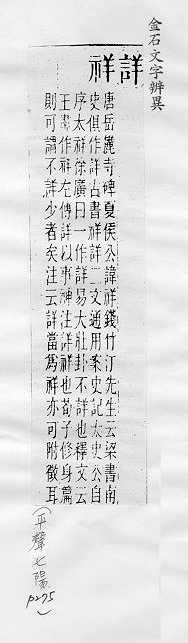 金石文字辨異
詳祥
唐岳麓寺碑夏侯公諱祥錢竹汀先生云梁書南
史俱作詳古書祥詳二文通用案史記太史公自
序太祥徐廣曰一作詳易大壯卦不詳也釋文云
王肅作祥左傳詳以事神注詳祥也荀子修身篇
則可謂不詳少者矣注云詳當爲祥亦可附徵耳
(平聲七陽 p275)